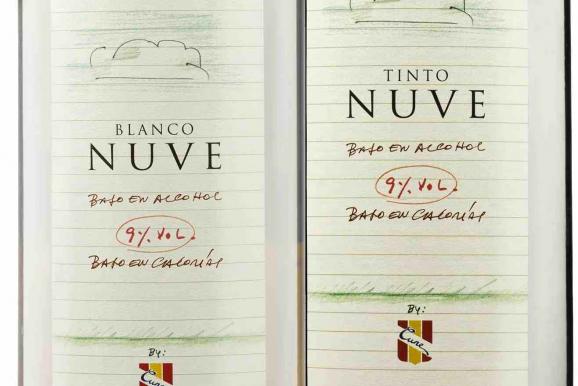 BLANCO
NUVE
BAJO EN ALCOHOL
9% VOL.
BAJO EN CALORÍAS
BY:
Cune
TINTO
NUVE
BAJO EN ALCOHOL
9% VOL.
BAJO EN CALORÍAS
BY:
Cune